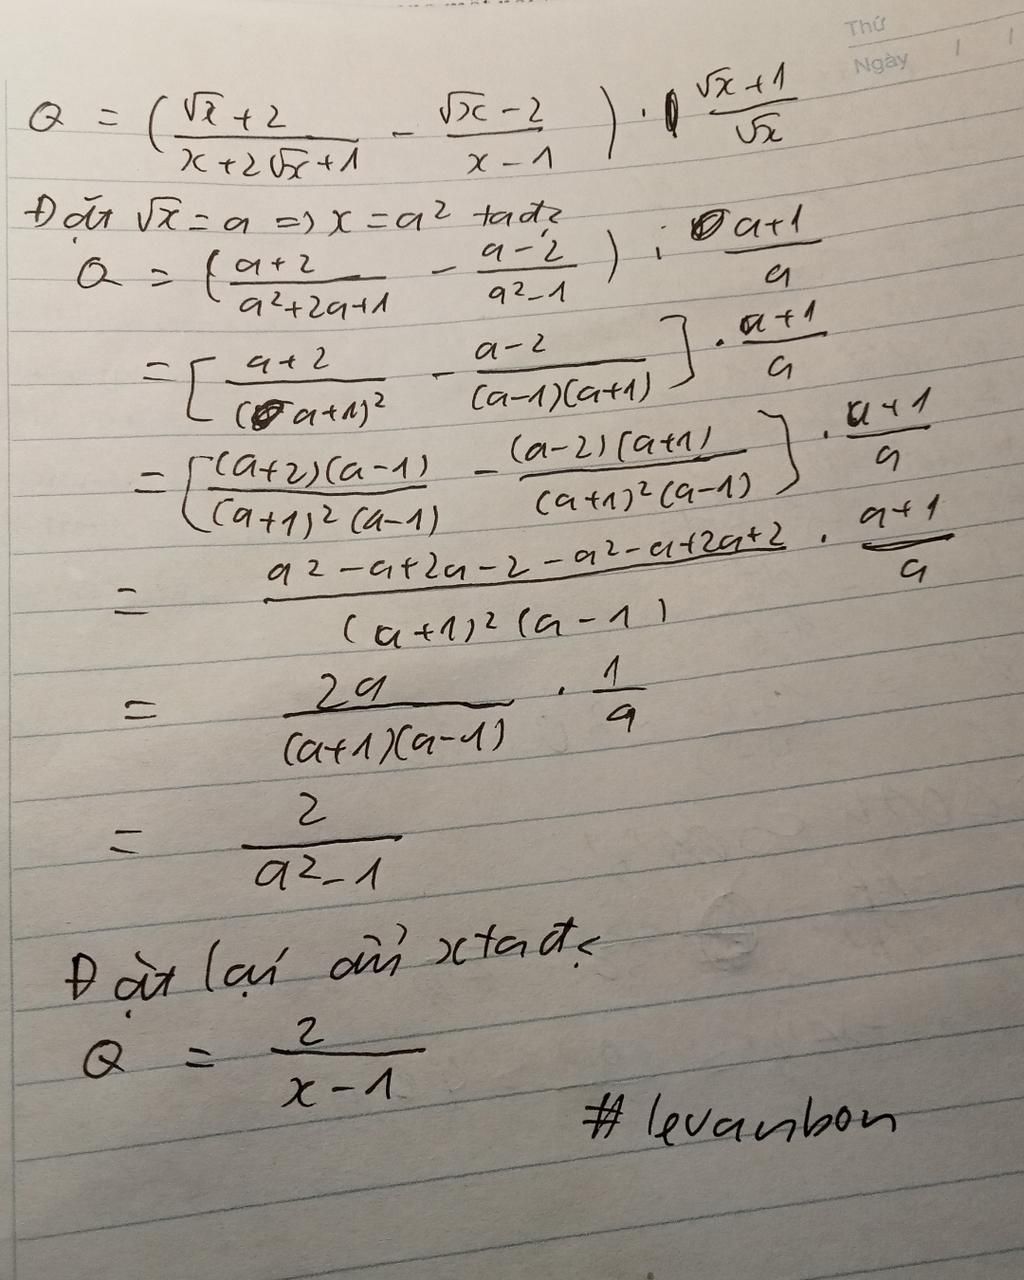 Thứ
Ngày / /
Q = ( (√x + 2)/(x + 2√x + 1) - (√x - 2)/(x - 1) ) . (√x + 1)/√x
Đặt √x = a => x = a² ta đc
Q = ( (a + 2)/(a² + 2a + 1) - (a - 2)/(a² - 1) ) : (a + 1)/a
= [ (a + 2)/(a + 1)² - (a - 2)/((a - 1)(a + 1)) ] . (a + 1)/a
= [ ((a + 2)(a - 1))/((a + 1)²(a - 1)) - ((a - 2)(a + 1))/((a + 1)²(a - 1)) ] . (a + 1)/a
= (a² - a + 2a - 2 - a² - a + 2a + 2)/((a + 1)²(a - 1)) . (a + 1)/a
= 2a/((a + 1)(a - 1)) . 1/a
= 2/(a² - 1)
Đặt lại ẩn x ta đc
Q = 2/(x - 1)
# levanbon